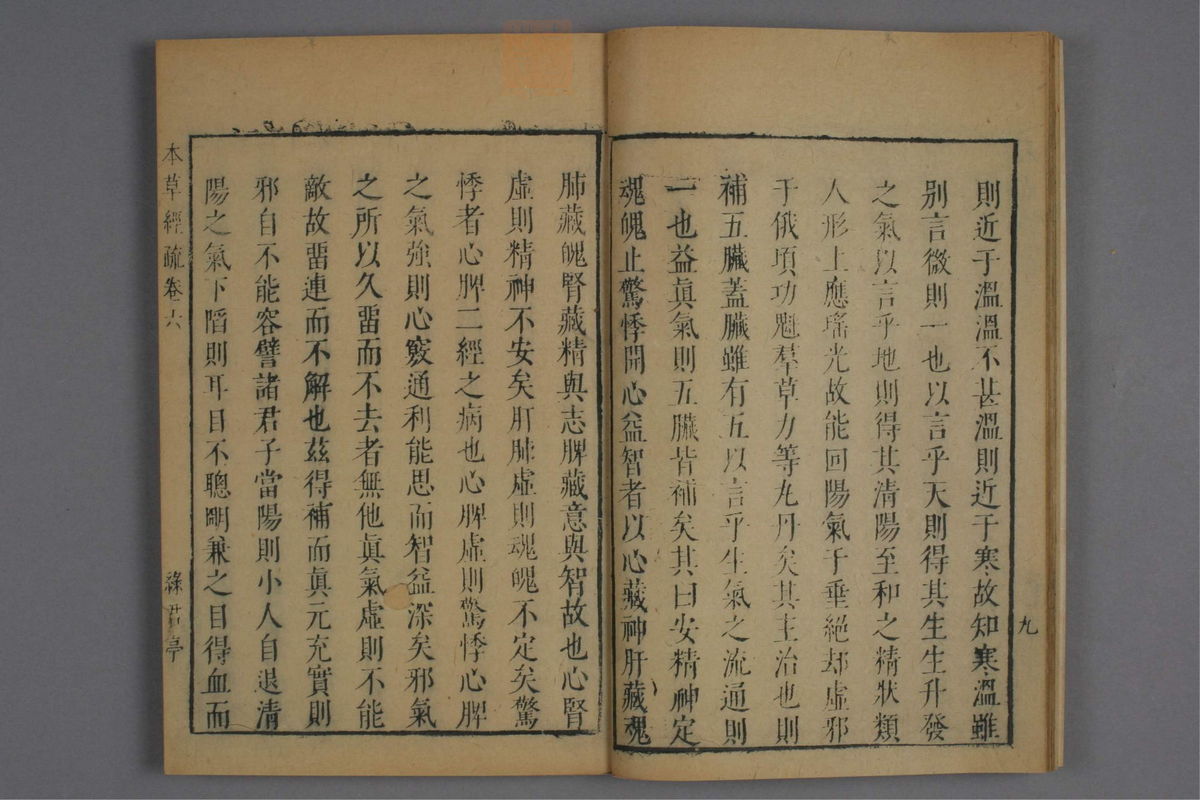 則近于溫溫不甚溫則近于寒故知寒溫雖
别言微則一也以言乎天則得其生生升發
之氣以言乎地則得其清陽至和之精狀類
人形上應瑤光故能回陽氣于垂絕却虛邪
于俄頃功魁羣草力等九丹矣其主治也則
補五臟蓋臟雖有五以言乎生氣之流通則
一也益眞氣則五臟皆補矣其曰安精神定
魂魄止驚悸開心益智者以心藏神肝藏魂
九
肺藏魄腎藏精與志脾藏意與智故也心腎
虛則精神不安矣肝肺虛則魂魄不定矣驚
悸者心脾二經之病也心脾虛則驚悸心脾
之氣強則心竅通利能思而智益深矣邪氣
之所以久畱而不去者無他眞氣虛則不能
敵故畱連而不解也茲得補而眞元充實則
邪自不能容譬諸君子當陽則小人自退清
陽之氣下陷則耳目不聰明兼之目得血而
本草經疏卷六
綠君亭